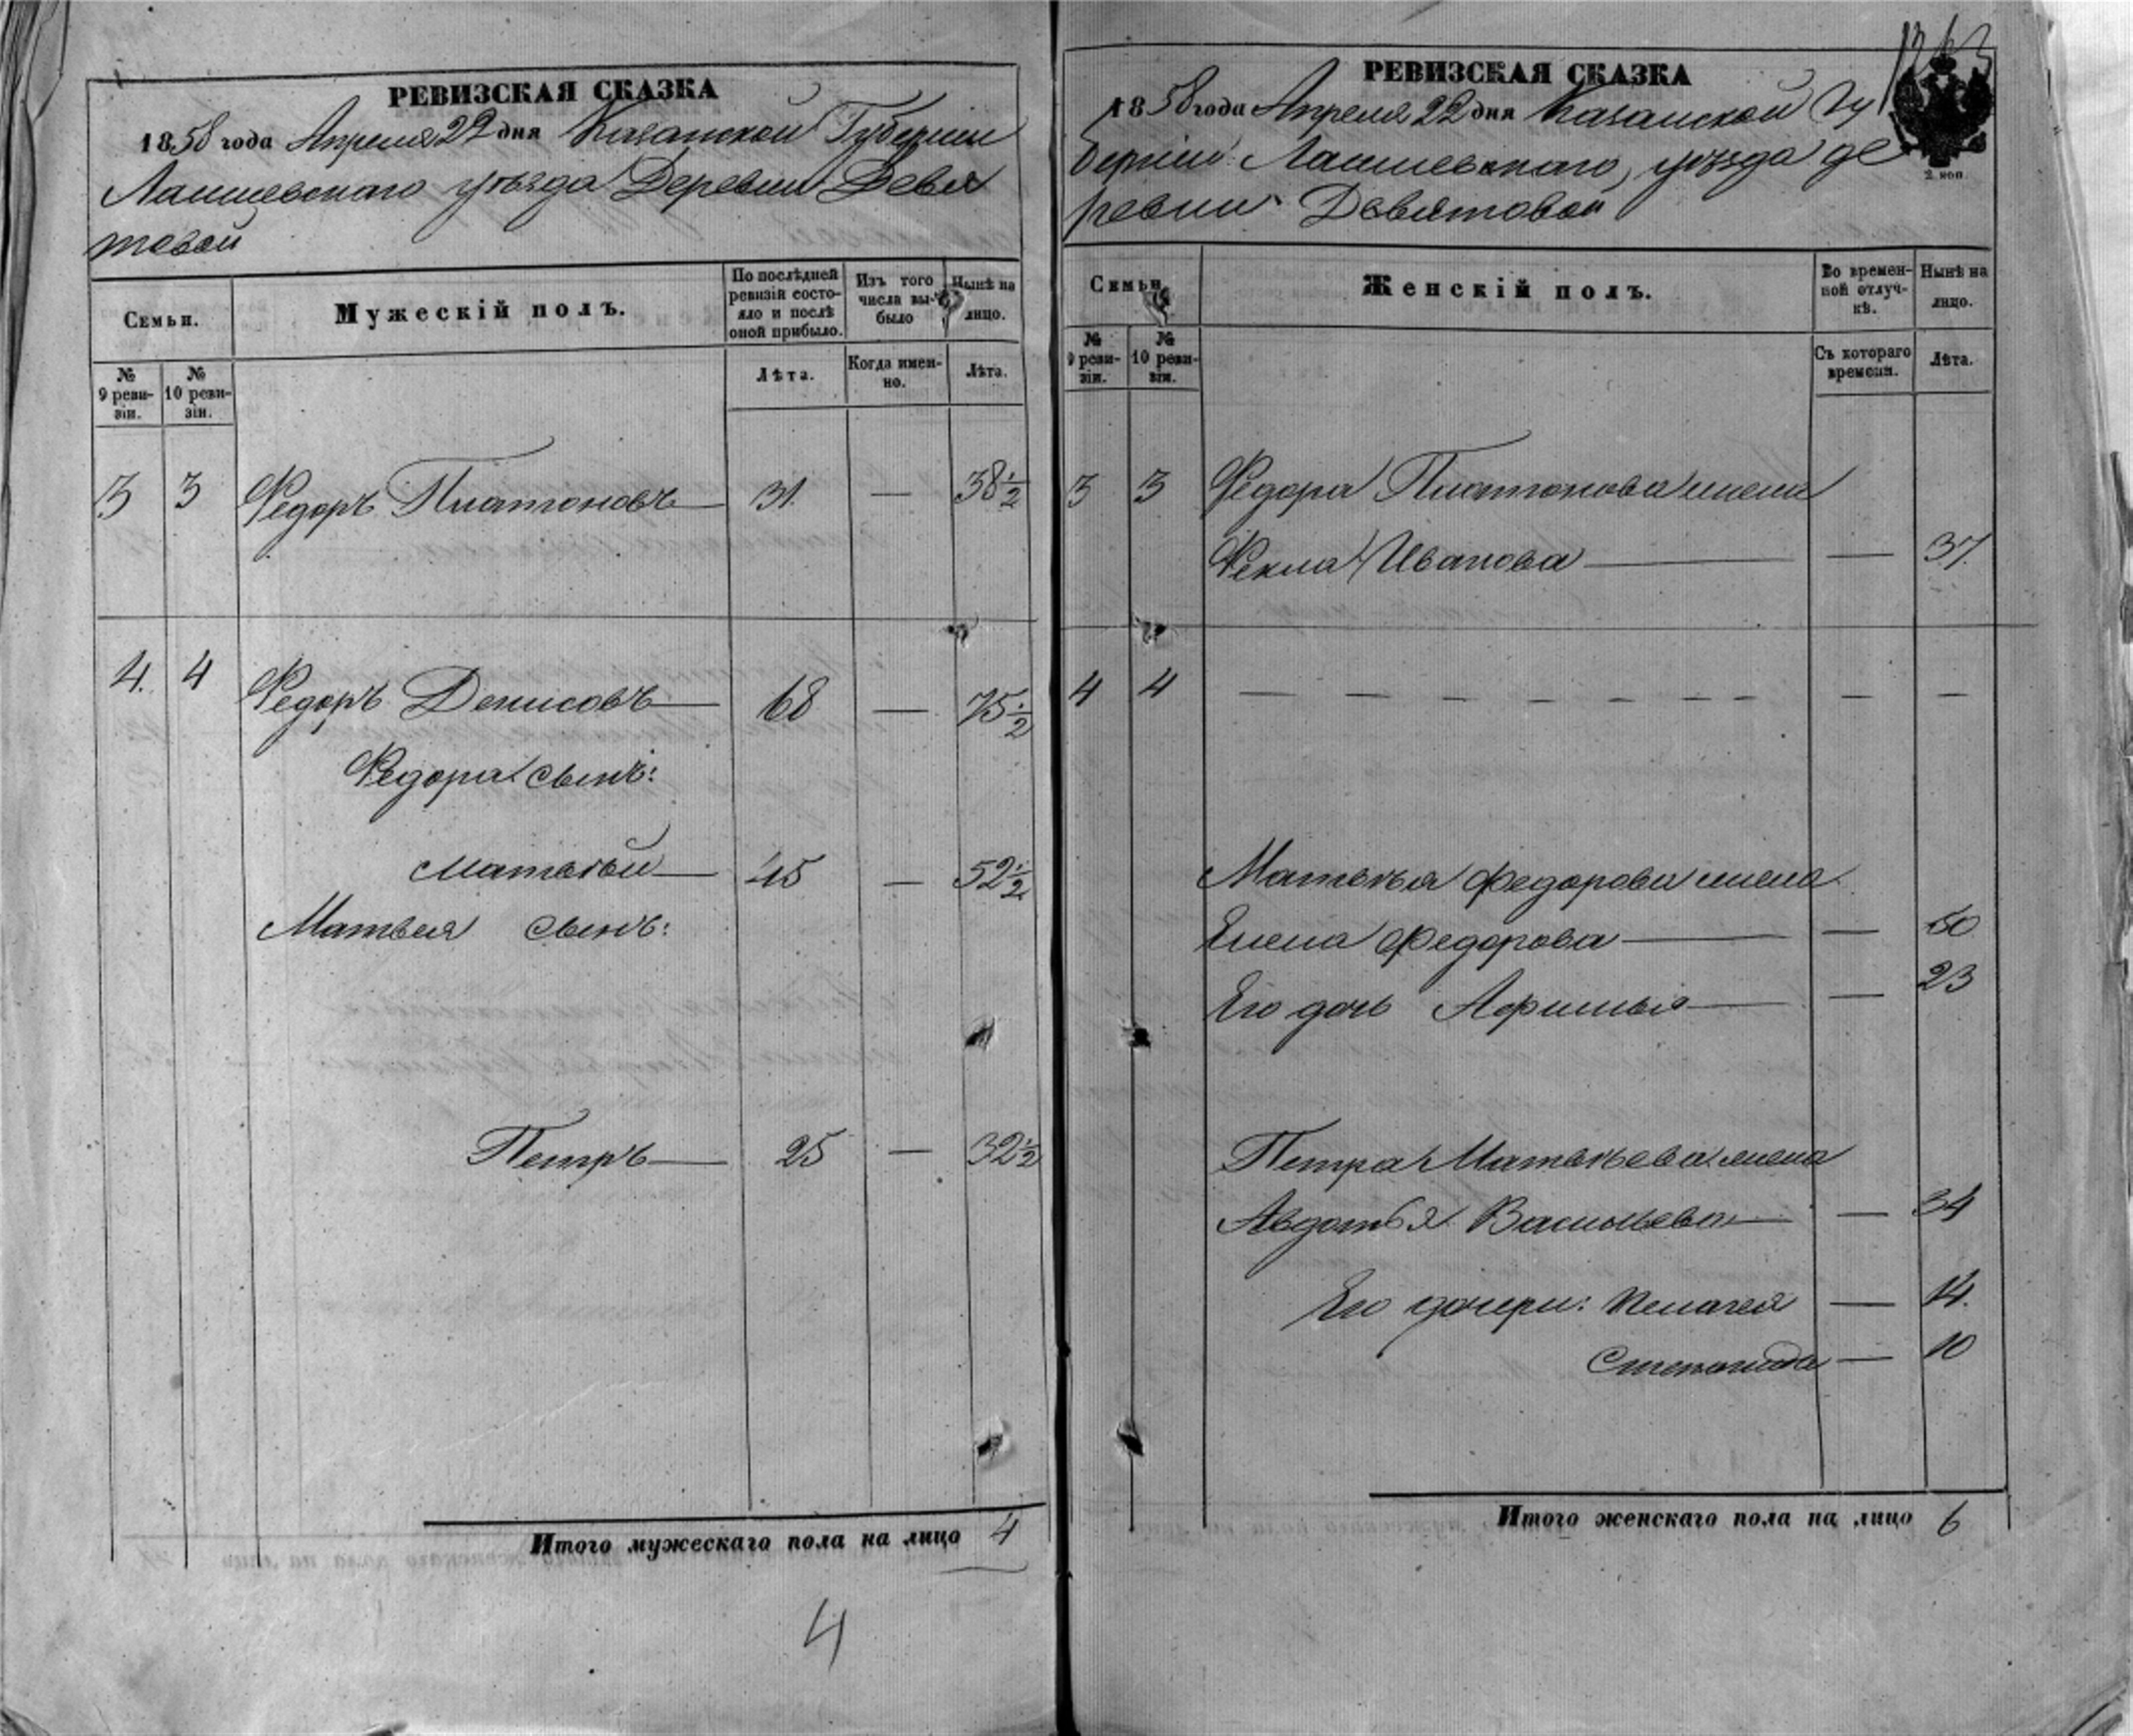 РЕВИЗСКАЯ СКАЗКА
1858 года Апреля 22 дня Казанской Губерніи
Лаишевскаго уѣзда Деревни Девя
товой
Семьи.
Мужескій полъ.
По послѣдней ревизіи состояло и послѣ оной прибыло.
Изъ того числа выбыло
Нынѣ на лицо.
№ 9 ревизіи.
№ 10 ревизіи.
Лѣта.
Когда именно.
Лѣта.
3 3 Федоръ Платоновъ 31. — 38 1/2
4. 4 Федоръ Денисовъ 68 — 75 1/2
Федора сынъ:
Матвѣй 45 — 52 1/2
Матвѣя сынъ:
Петръ 25 — 32 1/2
Итого мужескаго пола на лицо 4
4
РЕВИЗСКАЯ СКАЗКА
1858 года Апреля 22 дня Казанской Гу
берніи Лаишевскаго уѣзда де
ревни Девятовой
2 коп
Семьи
Женскій полъ.
Во временной отлучкѣ.
Нынѣ на лицо.
№ 9 ревизіи.
№ 10 ревизіи.
Съ котораго времени.
Лѣта.
3 3 Федора Платонова жена
Фекла Иванова — 37
4 4 — — — — — — — — —
Матвѣя Федорова жена
Елена Федорова — 50
Его дочь Афимья — 23
Петра Матвѣева жена
Авдотья Васильева — 34
Его дочери: Пелагея — 14.
Степанида — 10
Итого женскаго пола на лицо 6